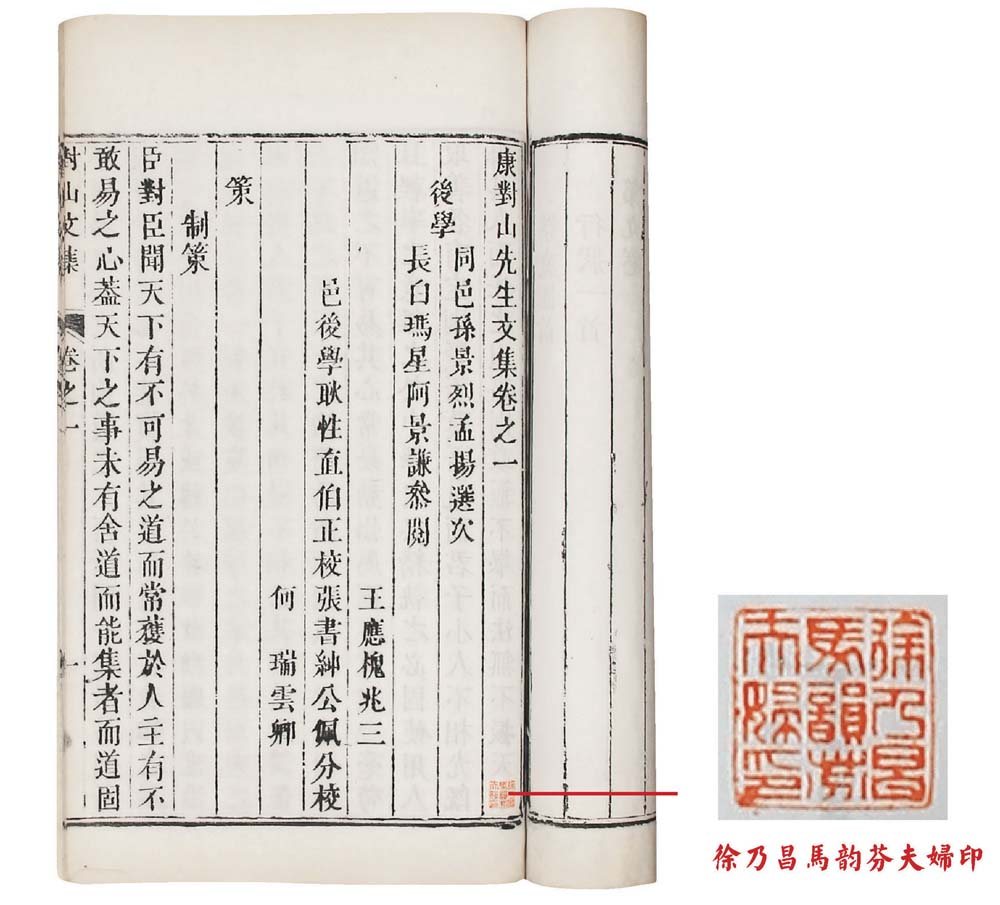 康對山先生文集卷之一
後學
同邑孫景烈孟揚選次
長白瑪星阿景謙叅閱
王應槐兆三
邑後學耿性直伯正校張書紳公佩分校
何瑞雲卿
策
制策
臣對臣聞天下有不可易之道而常獲於人主有不
敢易之心葢天下之事未有舍道而能集者而道固
對山文集 卷之一 一
徐乃昌
馬韻芬
夫婦印
徐乃昌馬韵芬夫婦印